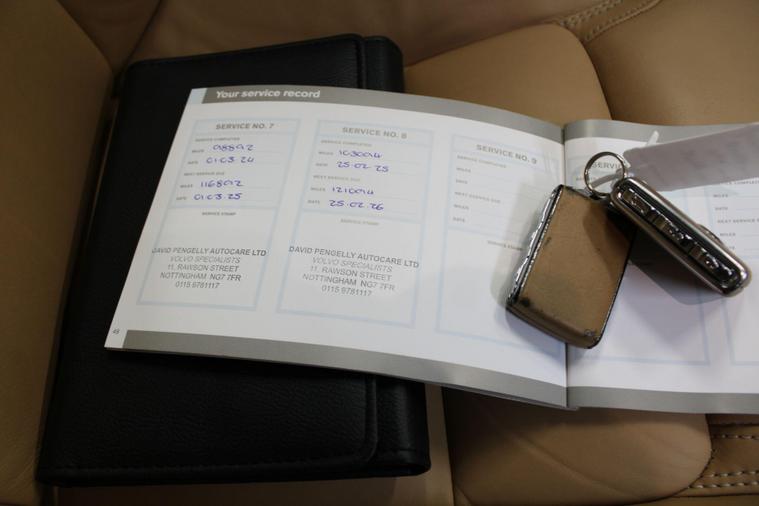 Your service record
SERVICE NO. 7
SERVICE COMPLETED
MILES 98892
DATE 01.03.24
NEXT SERVICE DUE
MILES 116892
DATE 01.03.25
SERVICE STAMP
DAVID PENGELLY AUTOCARE LTD
VOLVO SPECIALISTS
11, RAWSON STREET
NOTTINGHAM NG7 7FR
0115 9781117
SERVICE NO. 8
SERVICE COMPLETED
MILES 103094
DATE 25.02.25
NEXT SERVICE DUE
MILES 121094
DATE 25.02.26
SERVICE STAMP
DAVID PENGELLY AUTOCARE LTD
VOLVO SPECIALISTS
11, RAWSON STREET
NOTTINGHAM NG7 7FR
0115 9781117
SERVICE NO. 9
SERVICE COMPLETED
MILES
DATE
NEXT SERVICE DUE
MILES
DATE
SERVICE STAMP
VOLVO